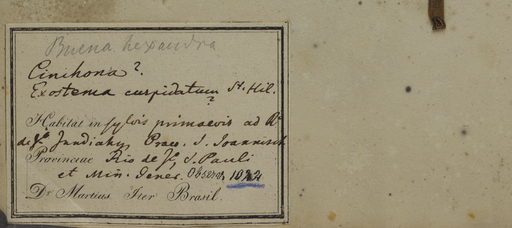 Buena hexandra
Cinihona?.
Exostema cuspidatum St. Hil.
?
Habitat in sylvis primaevis ad R.
de J. Jundiahy Praec. S. Joannis
Provinciae Rio de J., S. Pauli
et Min. Gener. Observ.
Dr Martius Iter Brasil.